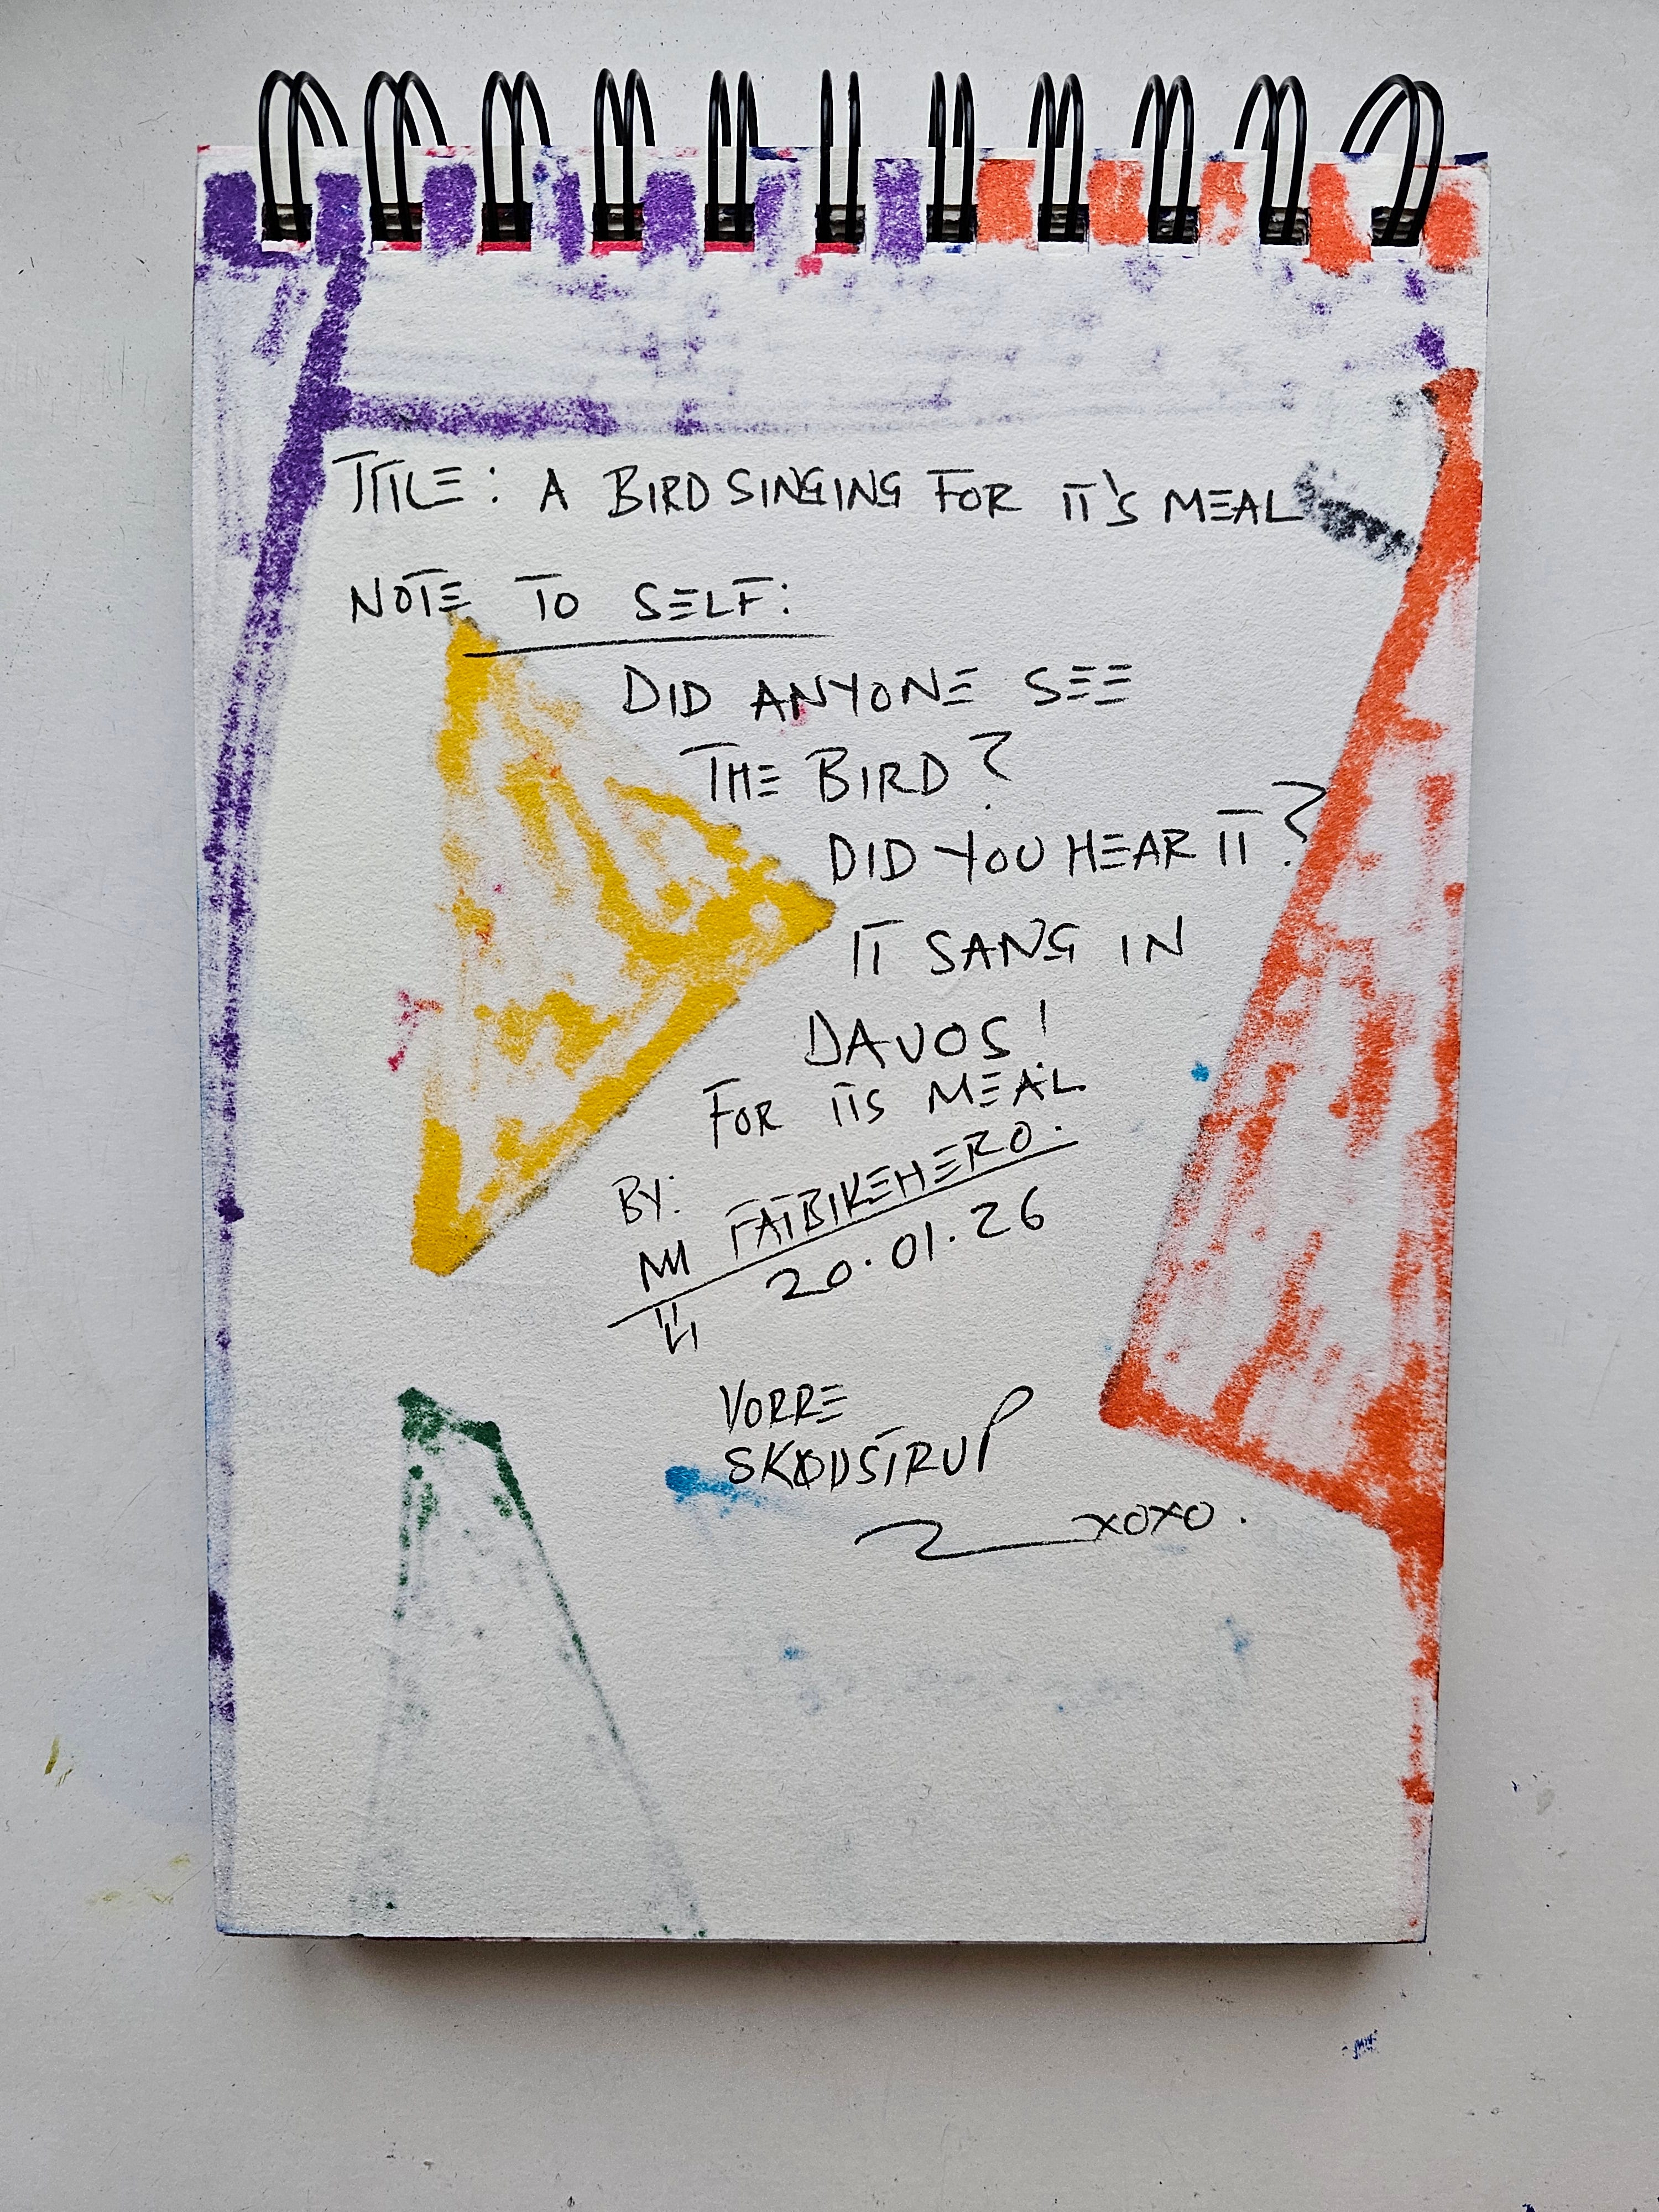 TITLE: A BIRD SINGING FOR IT'S MEAL
NOTE TO SELF:
DID ANYONE SEE
THE BIRD?
DID YOU HEAR IT?
IT SANG IN
DAVOS!
FOR ITS MEAL
BY:
FATBIKEHERO.
20.01.26
VORRE
SKØDSTRUP
XOXO.